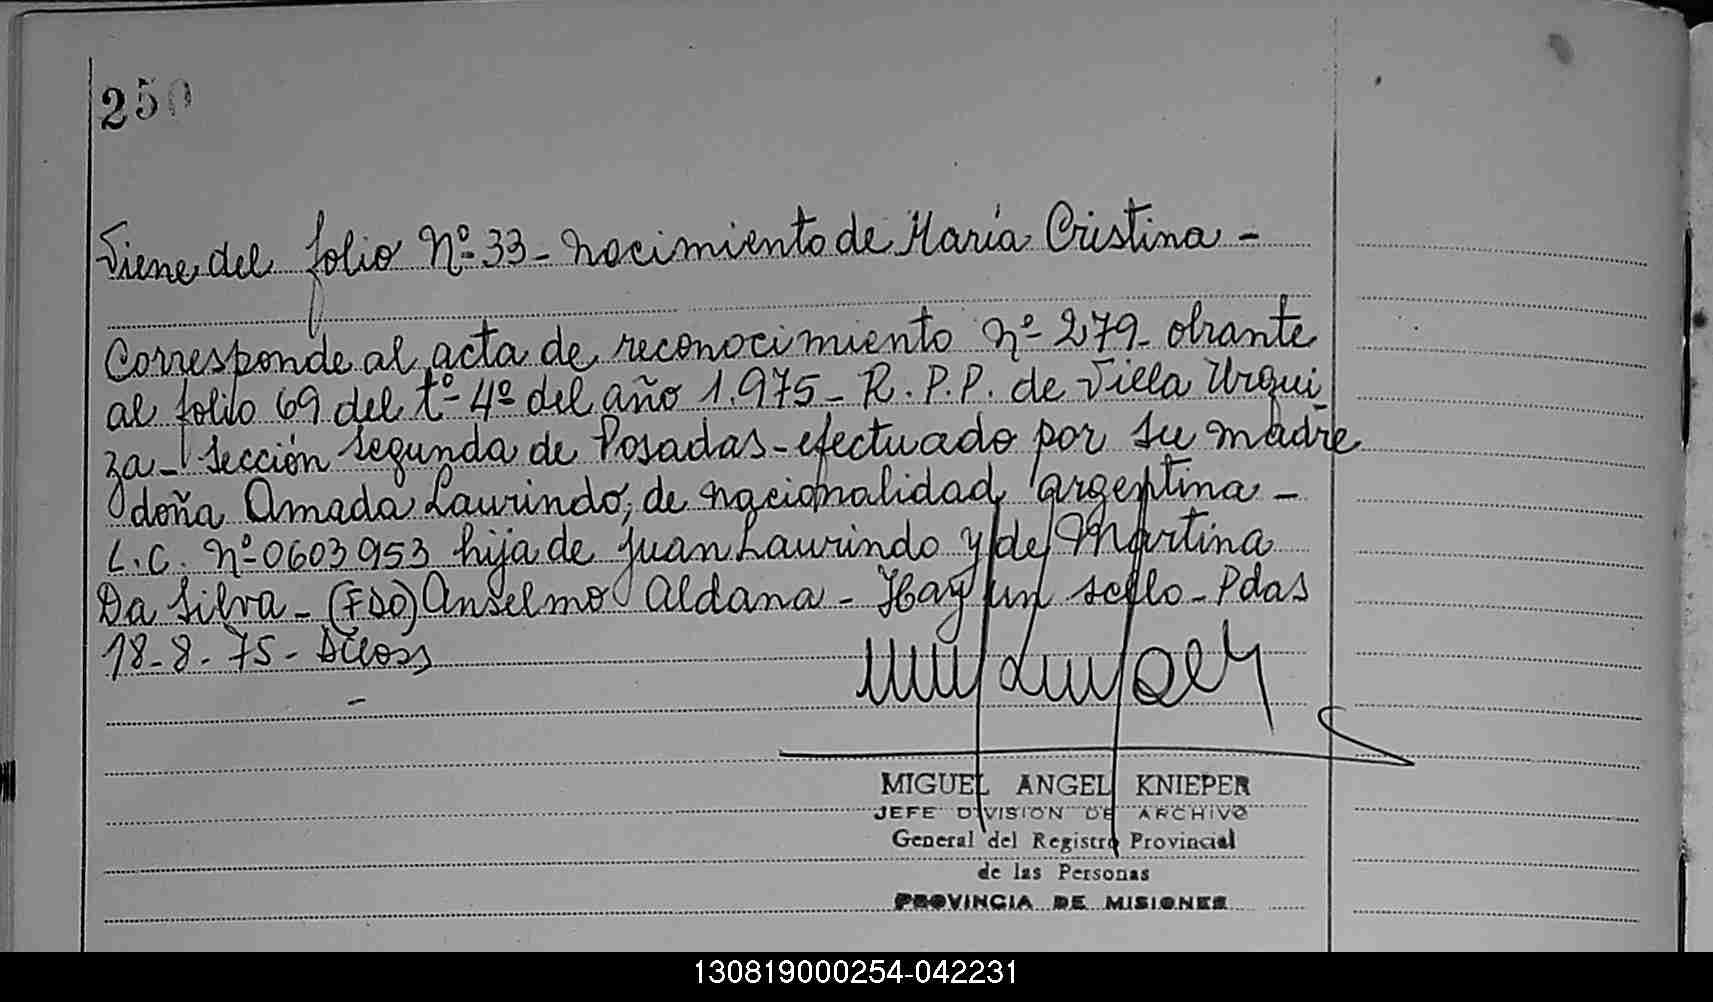 250
Viene del folio Nº 33 - Nacimiento de María Cristina -
Corresponde al acta de reconocimiento nº 279 - obrante
al folio 69 del tº 4º del año 1.975 - R.P.P. de Villa Urqui
za - Sección segunda de Posadas - efectuado por su madre
doña Amada Laurindo, de nacionalidad argentina -
L.C. Nº 0603953 hija de Juan Laurindo y de Martina
Da Silva - (FDO) Anselmo Aldana - Hay un sello - Pdas
18-8-75 -
MIGUEL ANGEL KNIEPER
JEFE DIVISION DE ARCHIVO
General del Registro Provincial
de las Personas
PROVINCIA DE MISIONES
130819000254-042231